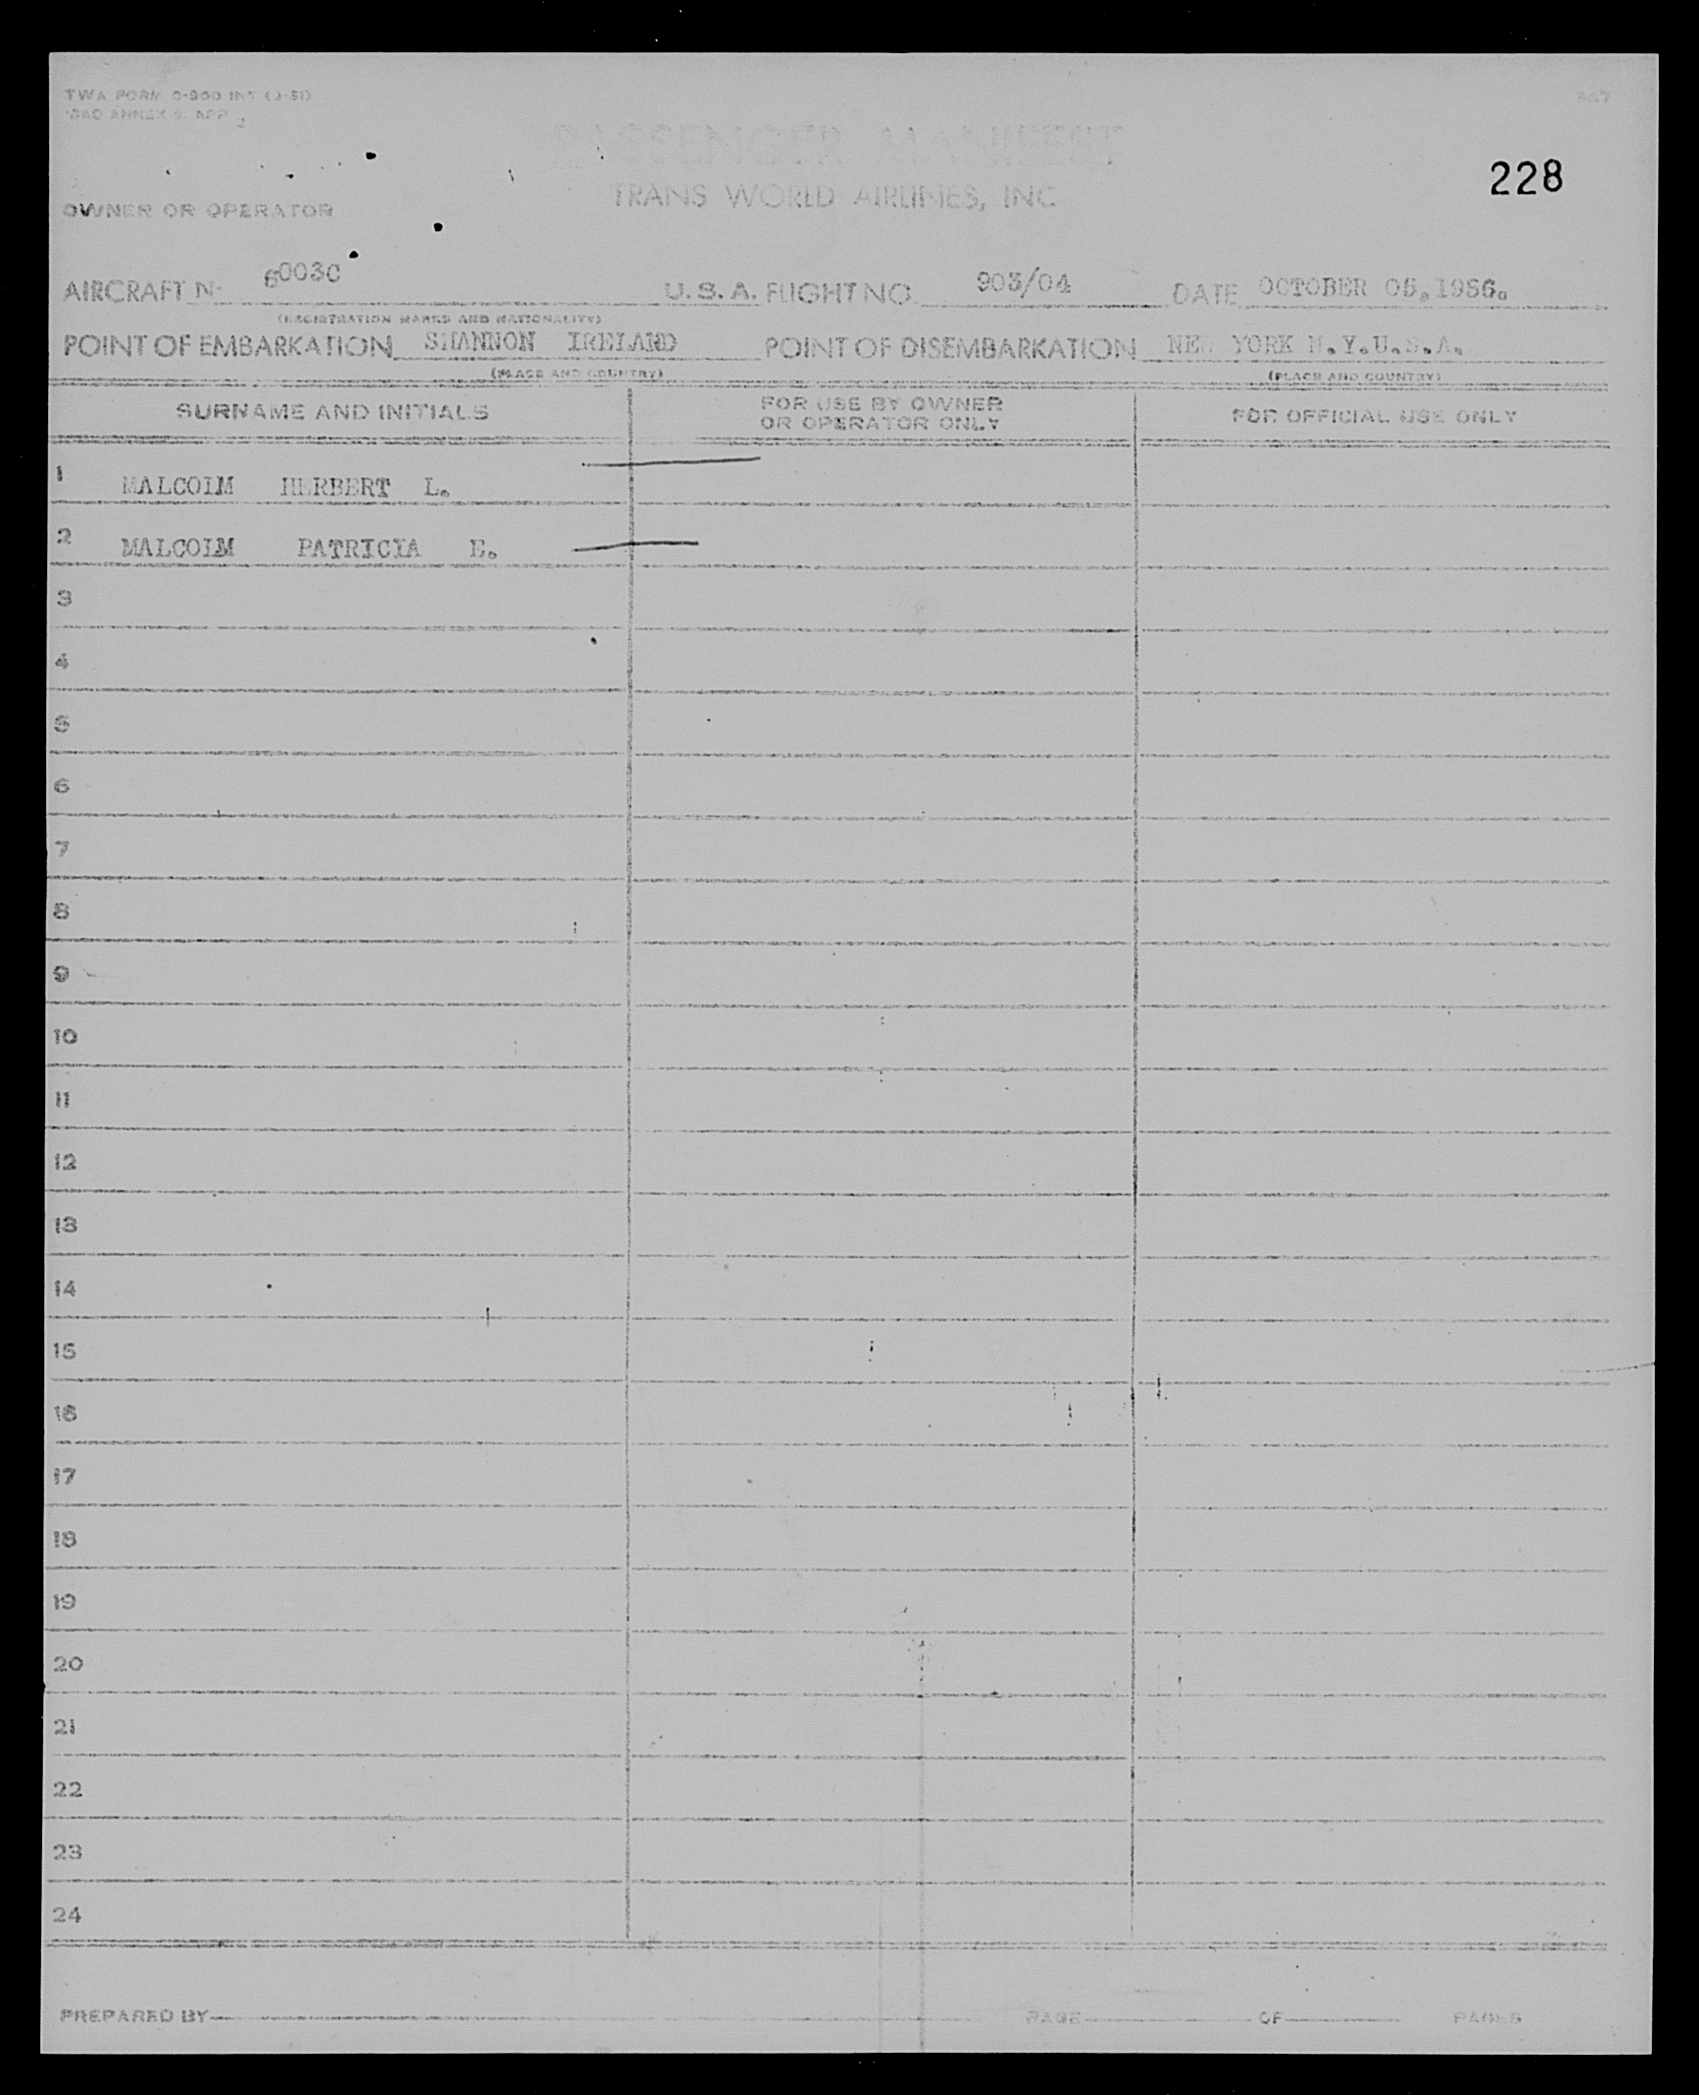 TWA FORM
PASSENGER MANIFEST
228
TRANS WORLD AIRLINES, INC
OWNER OR OPERATOR
AIRCRAFT No 6003C U. S. A. FLIGHT NO. 903/04 DATE OCTOBER 05, 1956.
(REGISTRATION MARKS AND NATIONALITY)
POINT OF EMBARKATION SHANNON IRELAND POINT OF DISEMBARKATION NEW YORK N.Y.U.S.A.
(PLACE AND COUNTRY) (PLACE AND COUNTRY)
SURNAME AND INITIALS FOR USE BY OWNER OR OPERATOR ONLY FOR OFFICIAL USE ONLY
1 MALCOLM HERBERT L.
2 MALCOLM PATRICIA E.
3
4
5
6
7
8
9
10
11
12
13
14
15
16
17
18
19
20
21
22
23
24
PREPARED BY PAGE OF PAGES